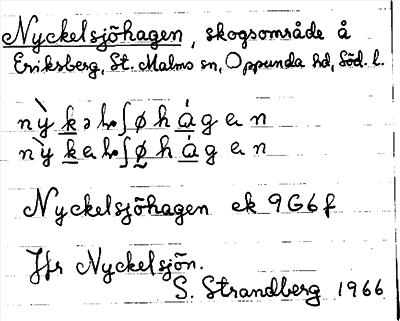 Nyckelsjöhagen, skogsområde å
Eriksberg, St. Malms sn, Oppunda hd, Söd. l.
Nyckelsjöhagen ek 9G6f
Jfr Nyckelsjön.
S. Strandberg 1966